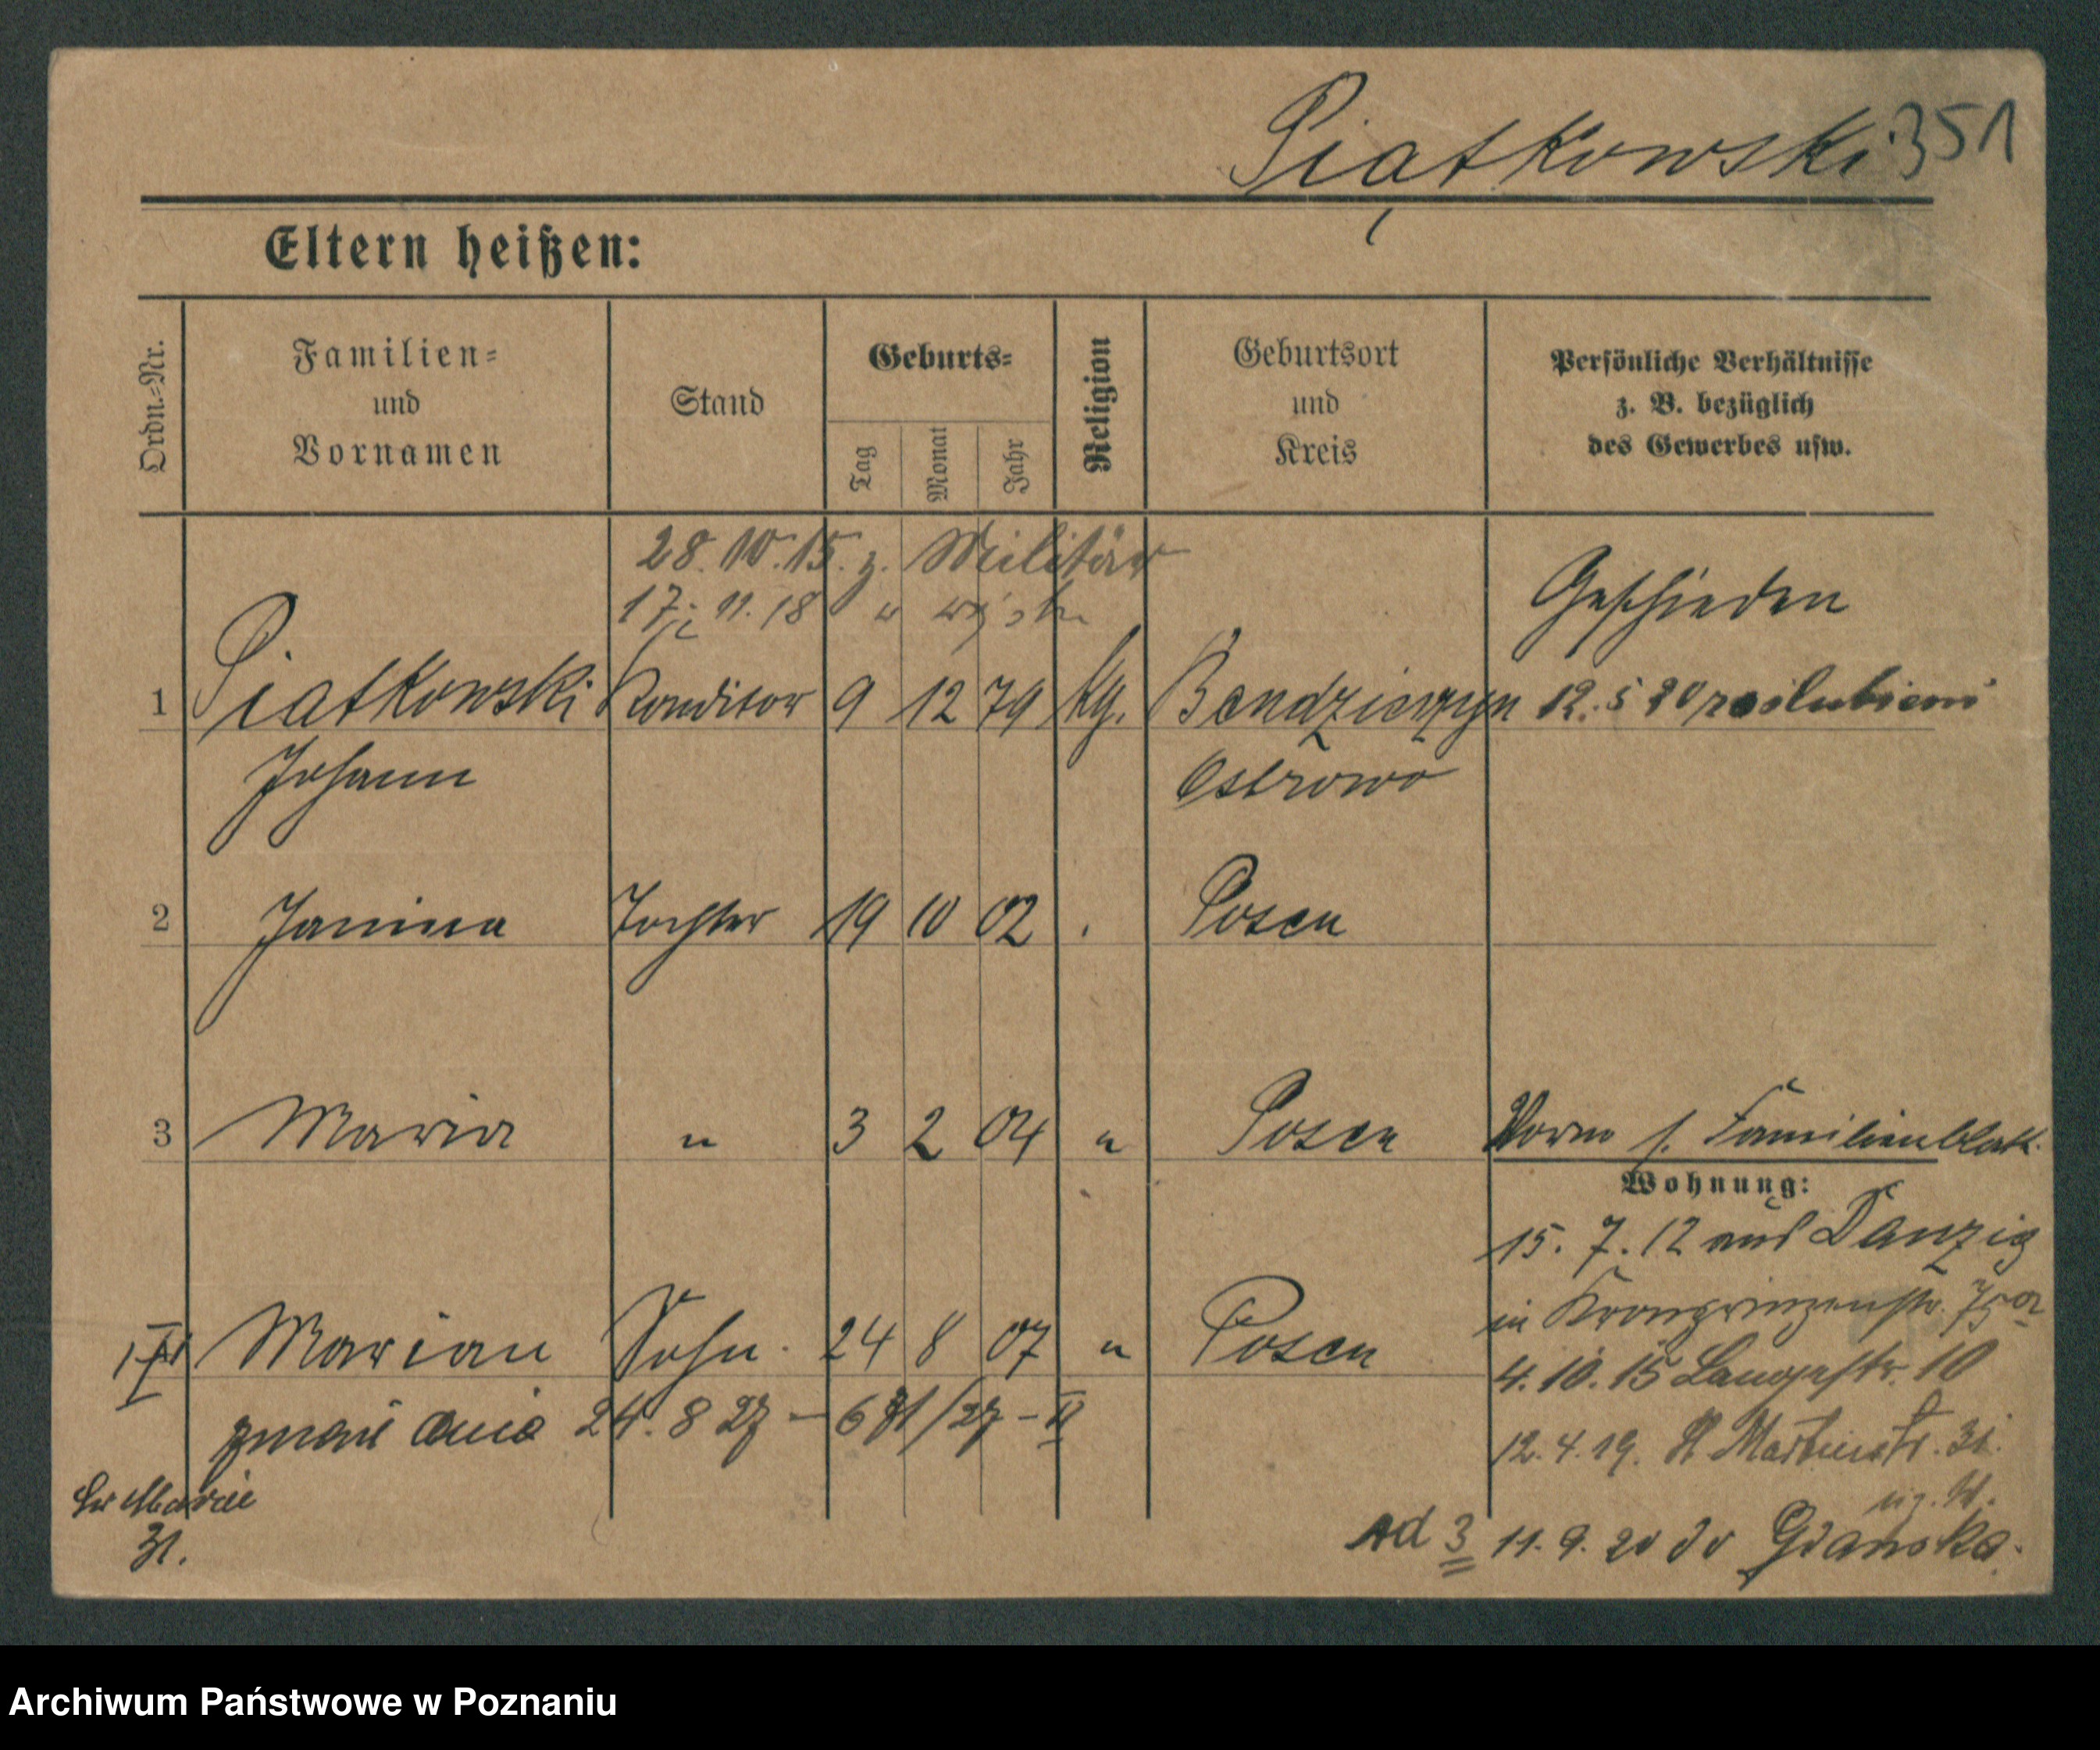 Piątkowski 351
Eltern heißen:
Ordn.=Nr.
Familien=
und
Vornamen
Stand
Geburts=
Tag
Monat
Jahr
Religion
Geburtsort
und
Kreis
Persönliche Verhältnisse
z. B. bezüglich
des Gewerbes usw.
28.10.15. z. Militär
17. 11. 18
Geschieden
1 Piatkowski Konditor 9 12 79 kg. 12. 5 20
Johann Ostrowo
2 Janina Tochter 19 10 02 Posen
3 Maria " 3 2 04 " Posen Vorm s. Familienblatt.
Wohnung:
15. 7. 12 aus Danzig
in Kronprinzenstr. 75a
Marian Sohn. 24 8 07 " Posen
4. 10. 15 Langestr. 10
zmarł dnia 24. 8 27 – 671/27 – II
12. 4. 19. St Martinstr. 31.
Św Marcin
31.
ad 3 11. 9. 20 do Gdańska.
Archiwum Państwowe w Poznaniu